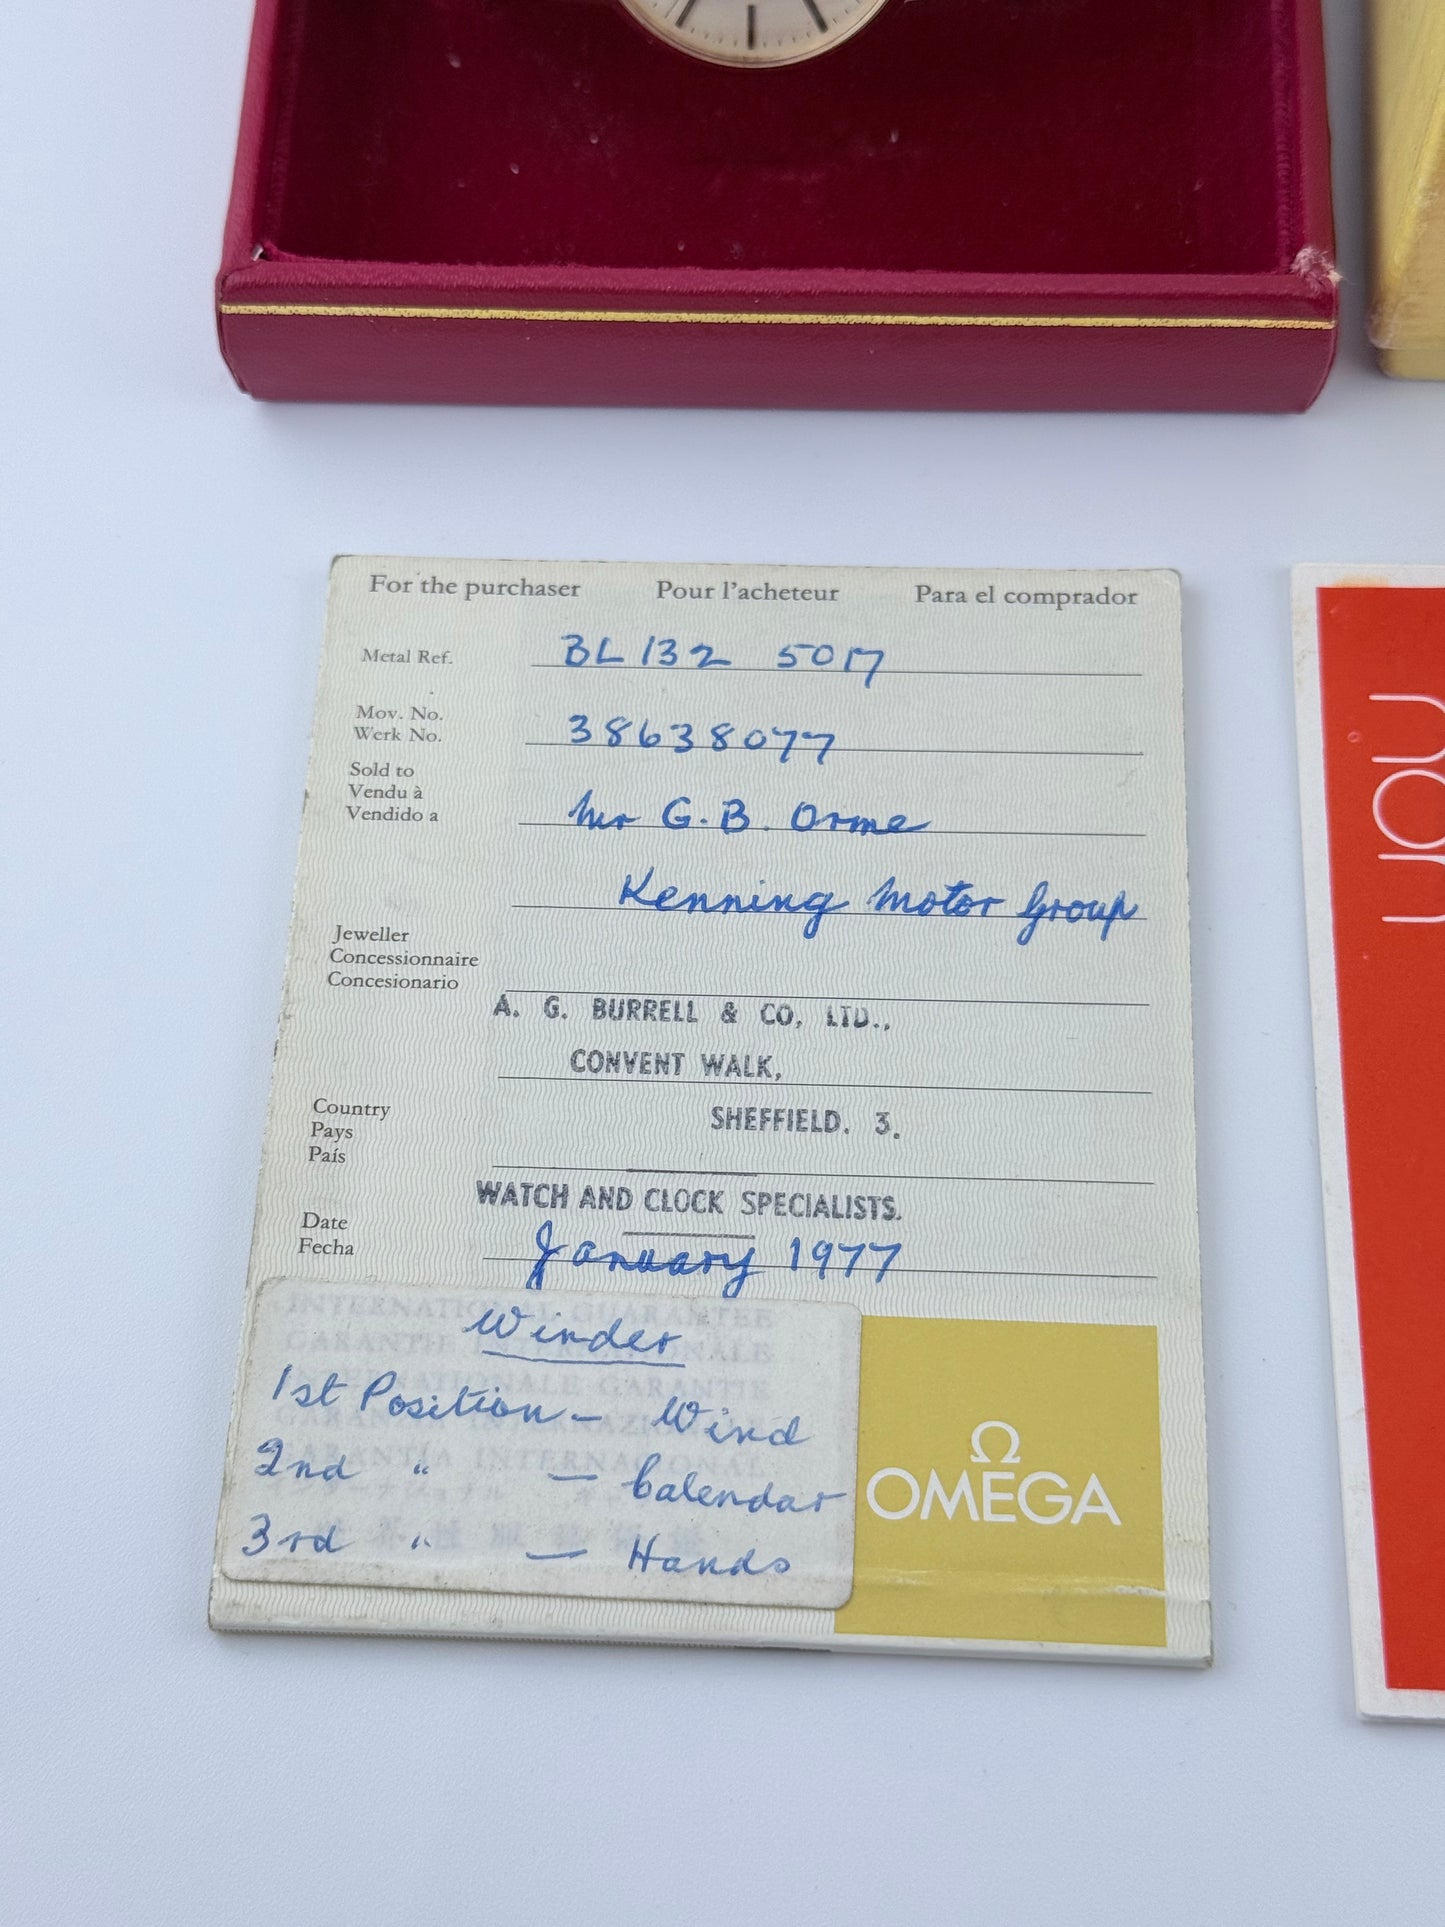 For the purchaser Pour l'acheteur Para el comprador
Metal Ref. BL 132 5017
Mov. No.
Werk No. 38638077
Sold to
Vendu à
Vendido a Mr G.B. Orme
Kenning Motor Group
Jeweller
Concessionnaire
Concesionario
A. G. BURRELL & CO, LTD.,
CONVENT WALK,
SHEFFIELD. 3.
Country
Pays
País
WATCH AND CLOCK SPECIALISTS.
Date
Fecha January 1977
INTERNATIONAL GUARANTEE
GARANTIE INTERNATIONALE
INTERNATIONALE GARANTIE
GARANZIA INTERNAZIONALE
GARANTÍA INTERNACIONAL
Winder
1st Position - Wind
2nd " - Calendar
3rd " - Hands
Ω
OMEGA